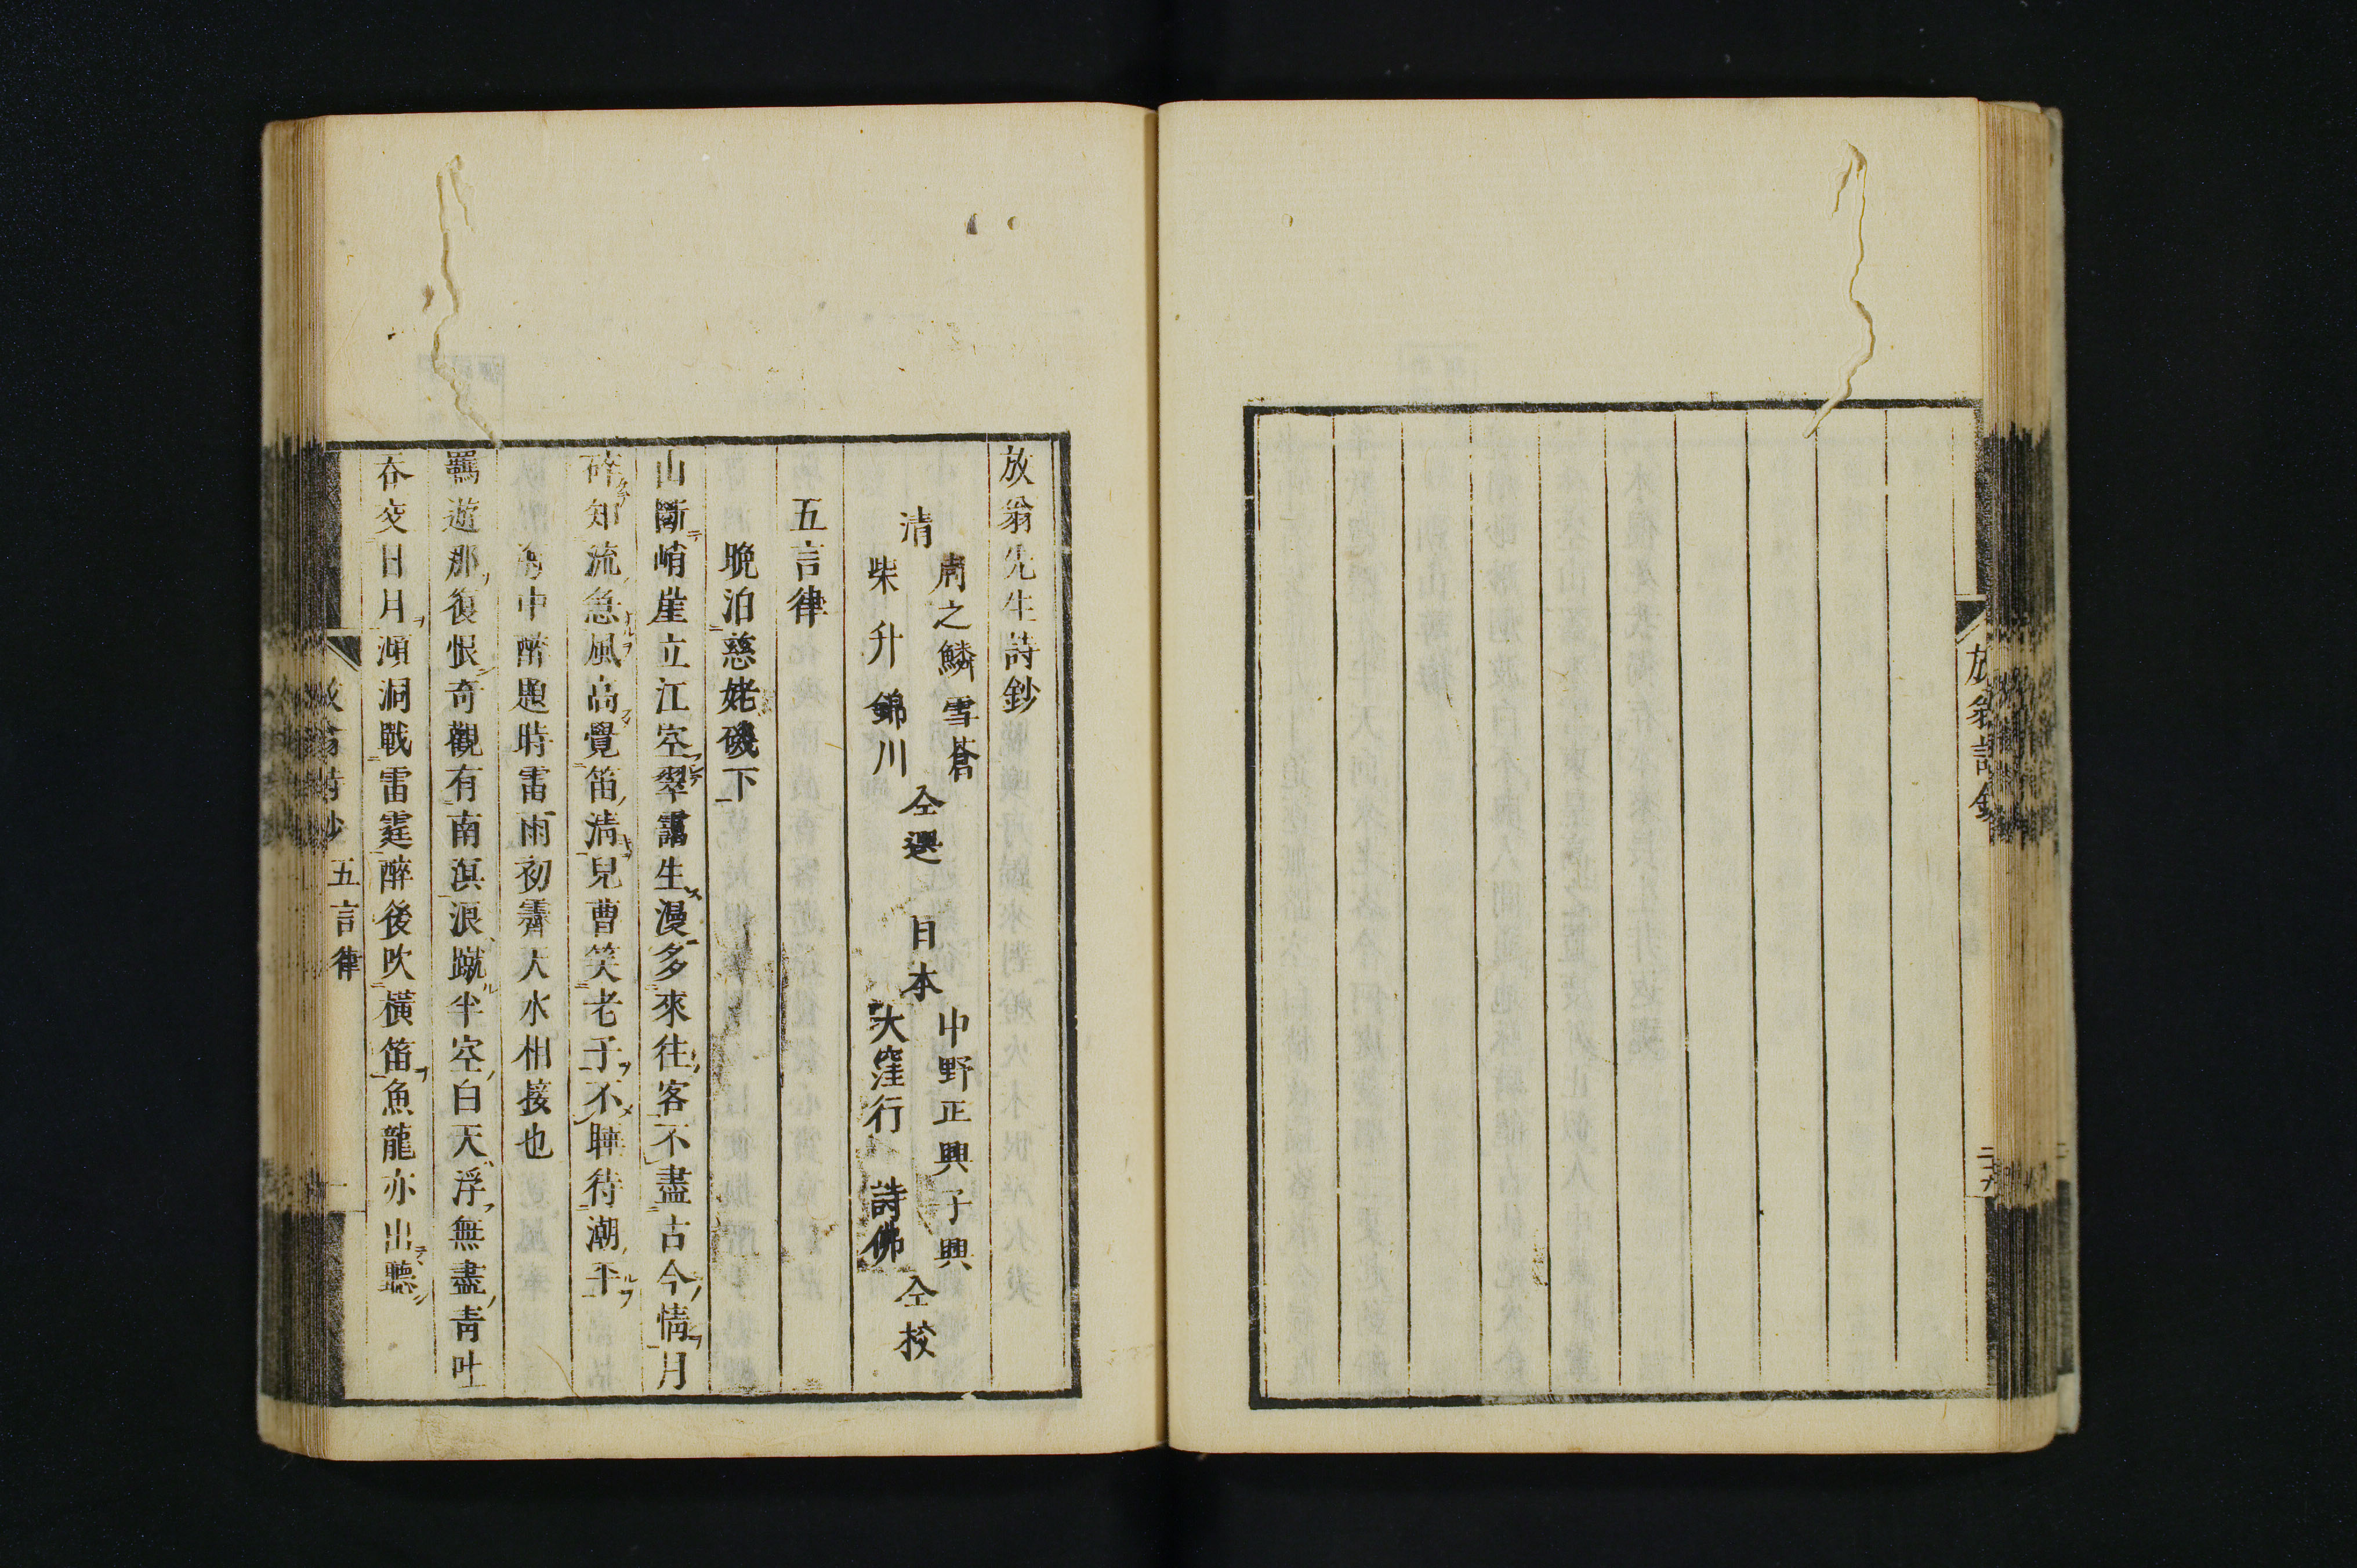 放翁詩鈔
二十九
放翁先生詩鈔
清
周之鱗雪蒼
柴升錦川
仝選
日本
中野正興子興
大窪行詩佛
仝校
五言律
晩泊慈姥磯下
山斷峭崖立江空翠靄生漫多來往客不盡古今情月
碎知流急風高覺笛清兒曹笑老子不睡待潮平
海中醉題時雷雨初霽天水相接也
羈遊那復恨奇觀有南溟浪蹴半空白天浮無盡青吐
吞交日月澒洞戰雷霆醉後吹橫笛魚龍亦出聽
放翁詩鈔 五言律 一